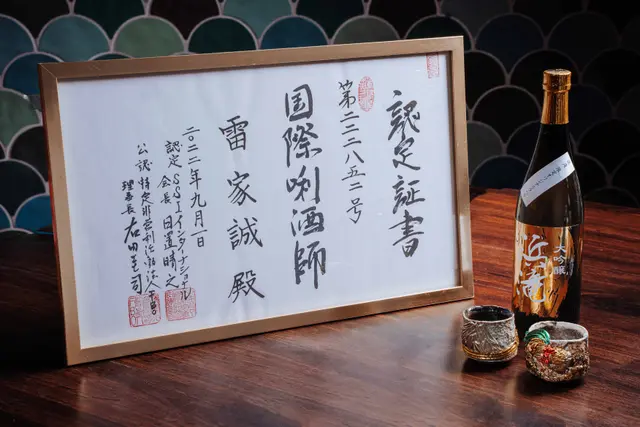 認定証書
第二二二八五二号
国際唎酒師
雷家誠殿
二〇二二年九月一日
認定 SSIインターナショナル
会長 日置晴之
公認 特定非営利活動法人
理事長 右田圭司
大吟醸